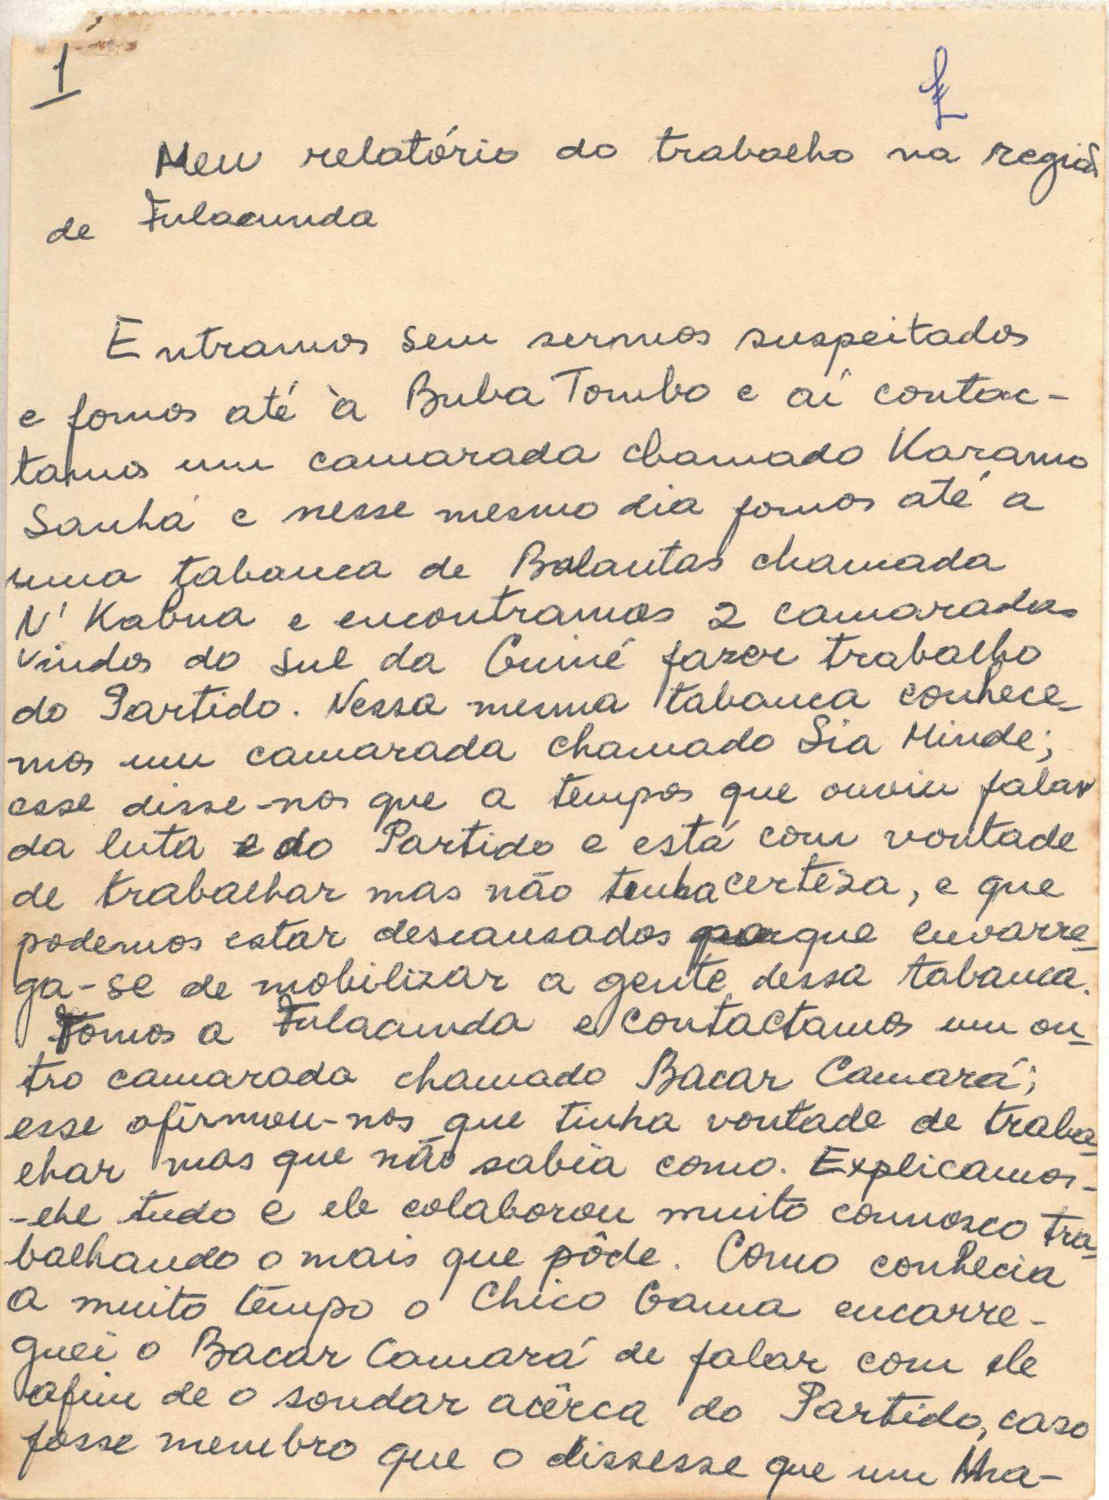 1
Meu relatório do trabalho na região
de Fulacunda
Entramos sem sermos suspeitados
e fomos até à Buba Tombo e aí contac-
tamos um camarada chamado Karamo
Sanhá e nesse mesmo dia fomos até a
uma tabanca de Balantas chamada
N' Kabna e encontramos 2 camaradas
vindos do sul da Guiné fazer trabalho
do Partido. Nessa mesma tabanca conhece-
mos um camarada chamado Sia Minde;
esse disse-nos que a tempos que ouviu falar
da luta e do Partido e está com vontade
de trabalhar mas não tenha certeza, e que
podemos estar descansados porque encarre-
ga-se de mobilizar a gente dessa tabanca.
Fomos a Fulacunda e contactamos um ou-
tro camarada chamado Bacar Camará;
esse afirmou-nos que tinha vontade de traba-
lhar mas que não sabia como. Explicamos-
-lhe tudo e ele colaborou muito connosco tra-
balhando o mais que pôde. Como conhecia
a muito tempo o Chico Gama encarre-
guei o Bacar Camará de falar com ele
afim de o sondar acêrca do Partido, caso
fosse membro que o dissesse que um